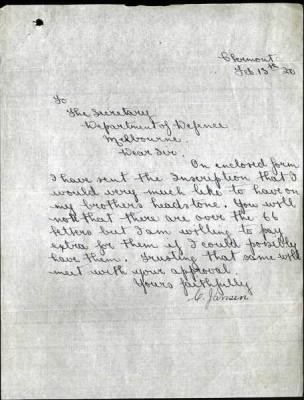 Clermont
Feb 13th 20
To
The Secretary
Department of Defence
Melbourne.
Dear Sir.
On enclosed form
I have sent the Inscription that I
would very much like to have on
my brothers headstone. You will
not that there are over the 66
letters but I am willing to pay
extra for them if I could possibly
have them. Trusting that same will
meet with your approval.
Yours faithfully
C. Jansen